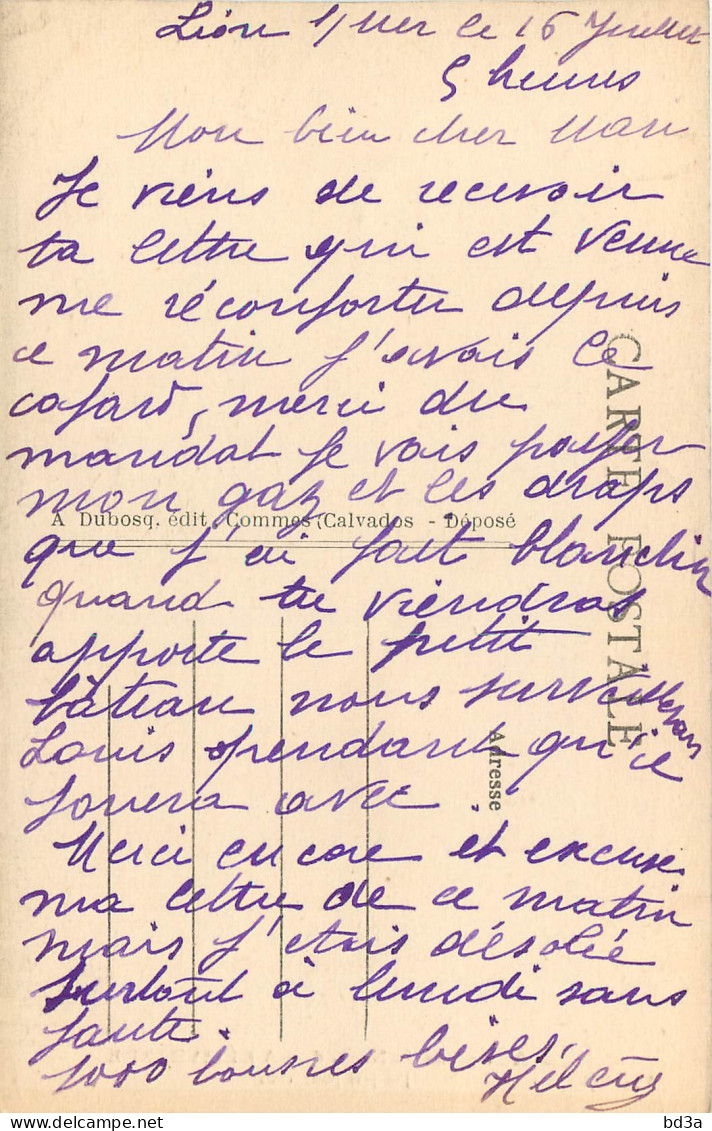 Lion s/ Mer ce 16 Juillet
5 heures
Mon bien cher Man
Je viens de recevoir
ta lettre qui est venue
me réconforter depuis
ce matin j'avais le
cafard, merci du
mandat je vais payer
mon gaz et les draps
A Dubosq. édit. Commes (Calvados - Déposé
que j'ai fait blanchir
quand tu viendras
apporte le petit
bâteau nous surveillerons
Louis pendant qu'il
jouera avec
Merci encore et excuse
ma lettre de ce matin
mais j'étais désolée
surtout à lundi sans
faute.
1000 bonnes bises.
CARTE POSTALE
Adresse
bd3a